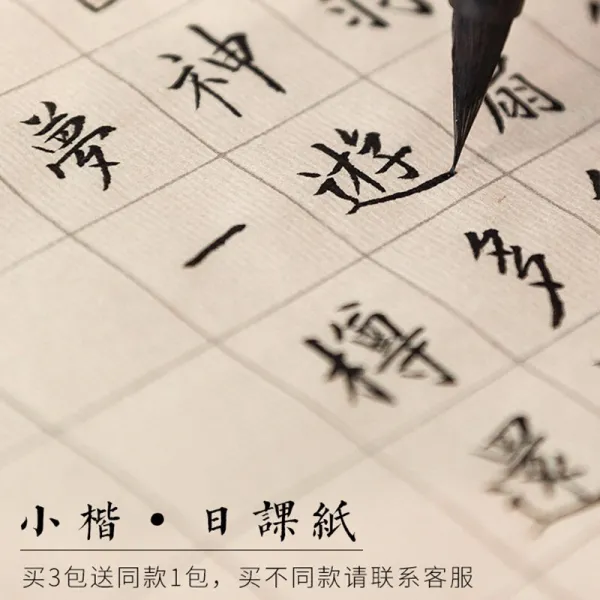 扇
神遊多
夢一樽還
小楷・日課紙
买3包送同款1包，买不同款请联系客服